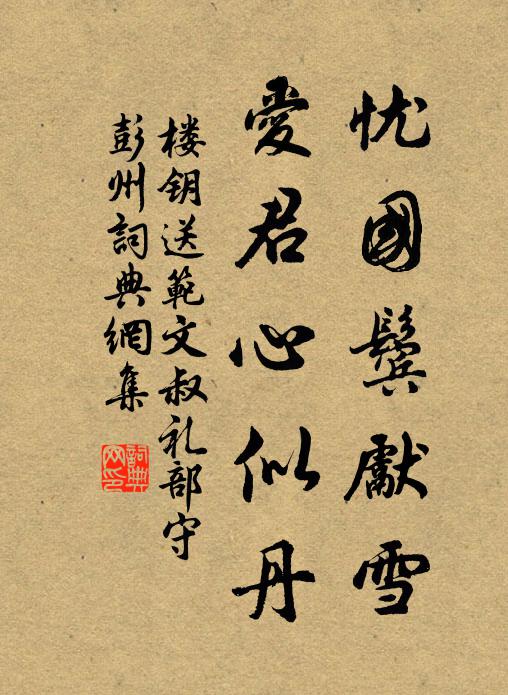 忧國鬓獻雪
愛君心似丹
楼钥送範文叔礼部守
彭州詞典網集
詞典网印